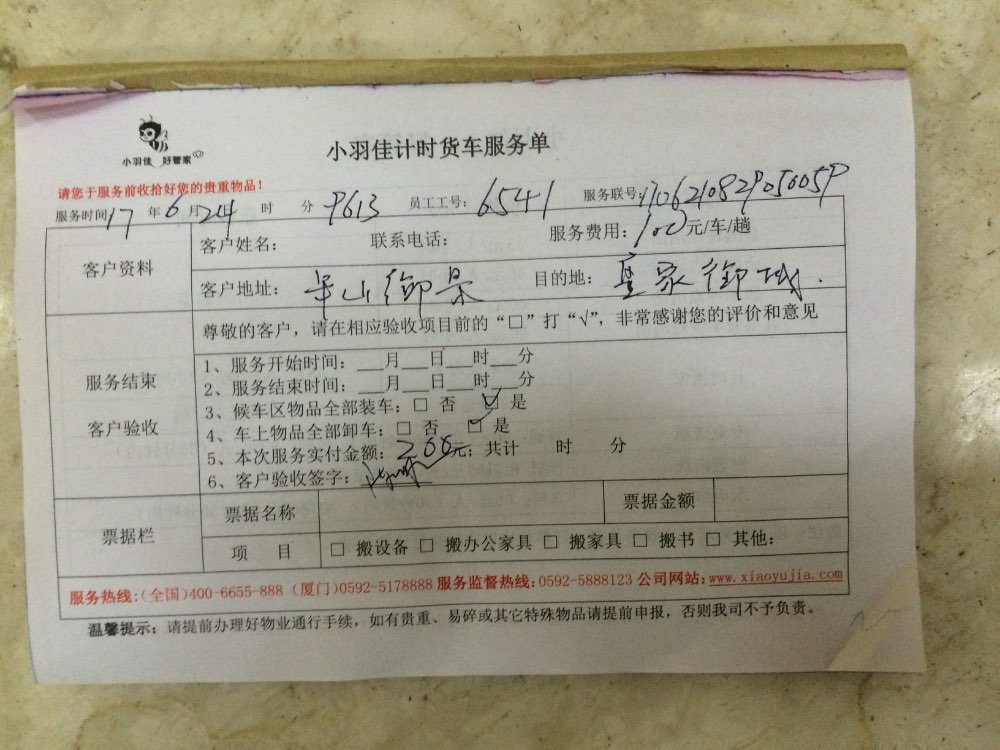 小羽佳 好管家
小羽佳计时货车服务单
请您于服务前收拾好您的贵重物品！
服务时间17年6月24日 时 分 9613 员工工号：6541 服务联号：
客户资料
客户姓名： 联系电话： 服务费用：100元/车/趟
客户地址：半山御景 目的地：皇家御城.
服务结束
客户验收
尊敬的客户，请在相应验收项目前的“□”打“√”，非常感谢您的评价和意见
1、服务开始时间：___月___日___时___分
2、服务结束时间：___月___日___时___分
3、候车区物品全部装车：□ 否 ☑ 是
4、车上物品全部卸车：□ 否 ☑ 是
5、本次服务实付金额：200元；共计 时 分
6、客户验收签字：
票据栏
票据名称 票据金额
项 目 □ 搬设备 □ 搬办公家具 □ 搬家具 □ 搬书 □ 其他：
服务热线：(全国)400-6655-888 (厦门)0592-5178888 服务监督热线：0592-5888123 公司网站：www.xiaoyujia.com
温馨提示：请提前办理好物业通行手续，如有贵重、易碎或其它特殊物品请提前申报，否则我司不予负责。